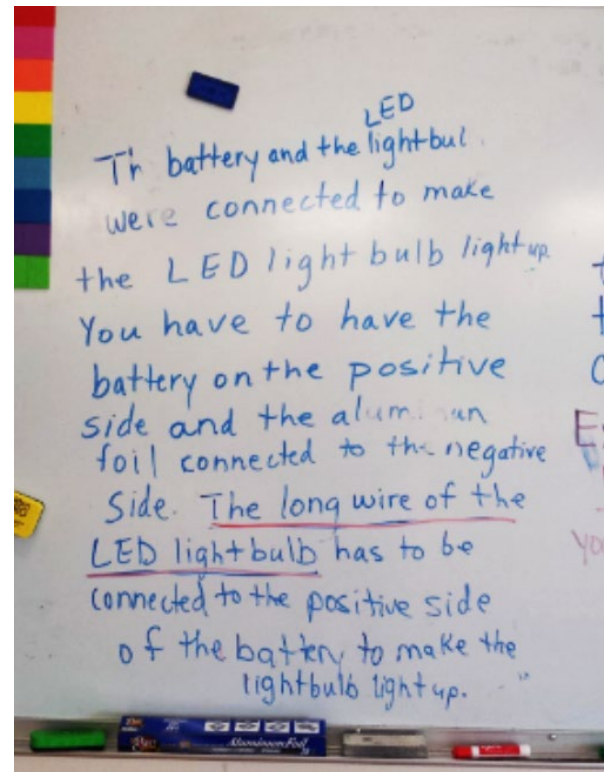 LED
Th battery and the lightbul
were connected to make
the LED light bulb light up.
You have to have the
battery on the positive
side and the alum un
foil connected to the negative
Side. The long wire of the
LED lightbulb has to be
connected to the positive side
of the battery to make the
lightbulb light up. "
E
yo
Aluminum Foil